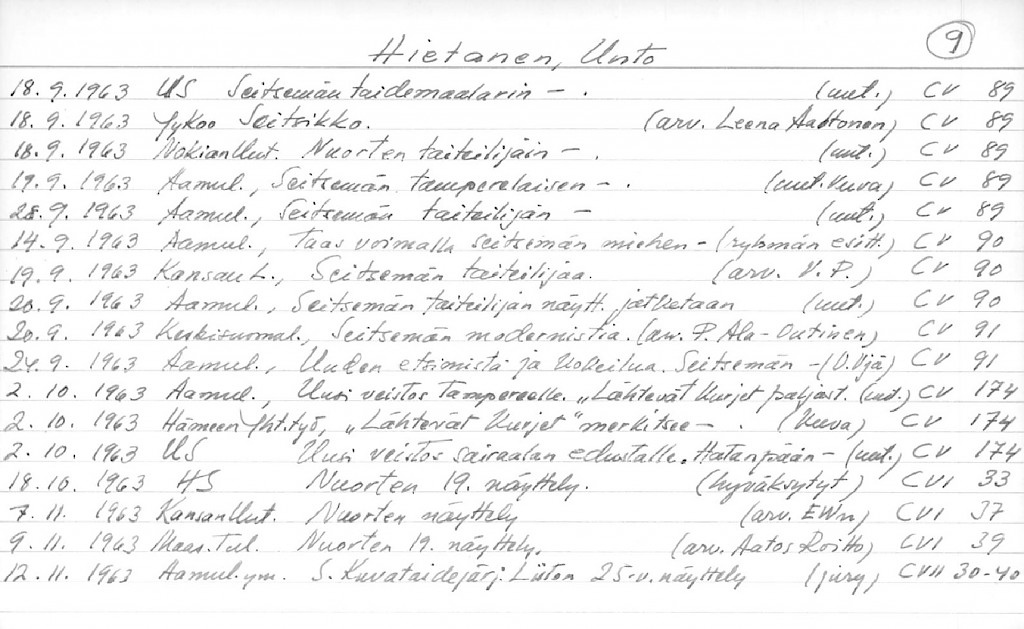 9
Hietanen, Unto
18.9.1963 US Seitsemän taidemaalarin - . (uut.) CV 89
18.9.1963 Jykoo Seitsikko. (arv. Leena Aaltonen) CV 89
18.9.1963 NokianUut. Nuorten taiteilijain - . (uut.) CV 89
19.9.1963 Aamul., Seitsemän tamperelaisen - . (uut. kuva) CV 89
28.9.1963 Aamul., Seitsemän taiteilijan - (uut.) CV 89
14.9.1963 Aamul., Taas voimalla seitsemän miehen - (ryhmän esitt.) CV 90
19.9.1963 Kansan L., Seitsemän taiteilijaa. (arv. V.P.) CV 90
20.9.1963 Aamul., Seitsemän taiteilijan näytt. jatketaan (uut.) CV 90
20.9.1963 Keskisuomal., Seitsemän modernistia. (arv. P. Ala-Outinen) CV 91
24.9.1963 Aamul., Uuden etsimistä ja kokeilua. Seitsemän - (O.Vjä) CV 91
2.10.1963 Aamul., Uusi veistos Tampereelle. "Lähtevät kurjet paljast. (uut.) CV 174
2.10.1963 Hämeen Yht.työ, "Lähtevät kurjet" merkitsee - . (kuva) CV 174
2.10.1963 US Uusi veistos sairaalan edustalle. Hatanpään - (uut.) CV 174
18.10.1963 HS Nuorten 19. näyttely. (hyväksytyt) CVI 33
7.11.1963 KansanUut. Nuorten näyttely (arv. EWn) CVI 37
9.11.1963 Maas.Tul. Nuorten 19. näyttely. (arv. Aatos Roitto) CVI 39
12.11.1963 Aamul. ym. S. Kuvataidejärj. Liiton 25-v. näyttely (jury) CVII 30-40